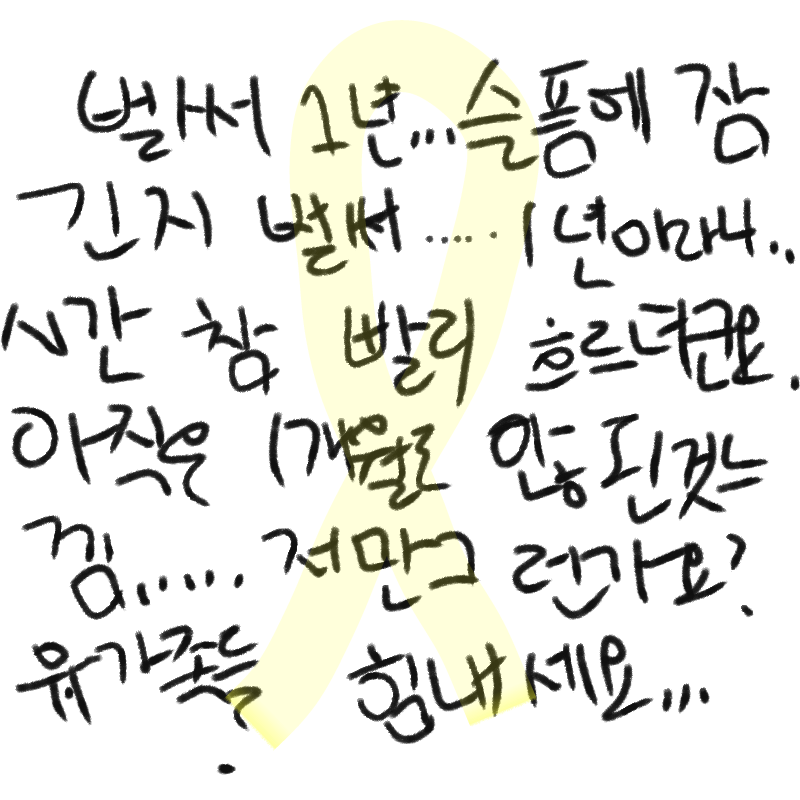 벌써 1년...슬픔에 잠
긴지 벌써 ..... 1년이라니..
시간 참 빨리 흐르녀군요.
아직은 1개월도 않 된것느
낌..... 저만그런가요?
유가족들 힘내세요...